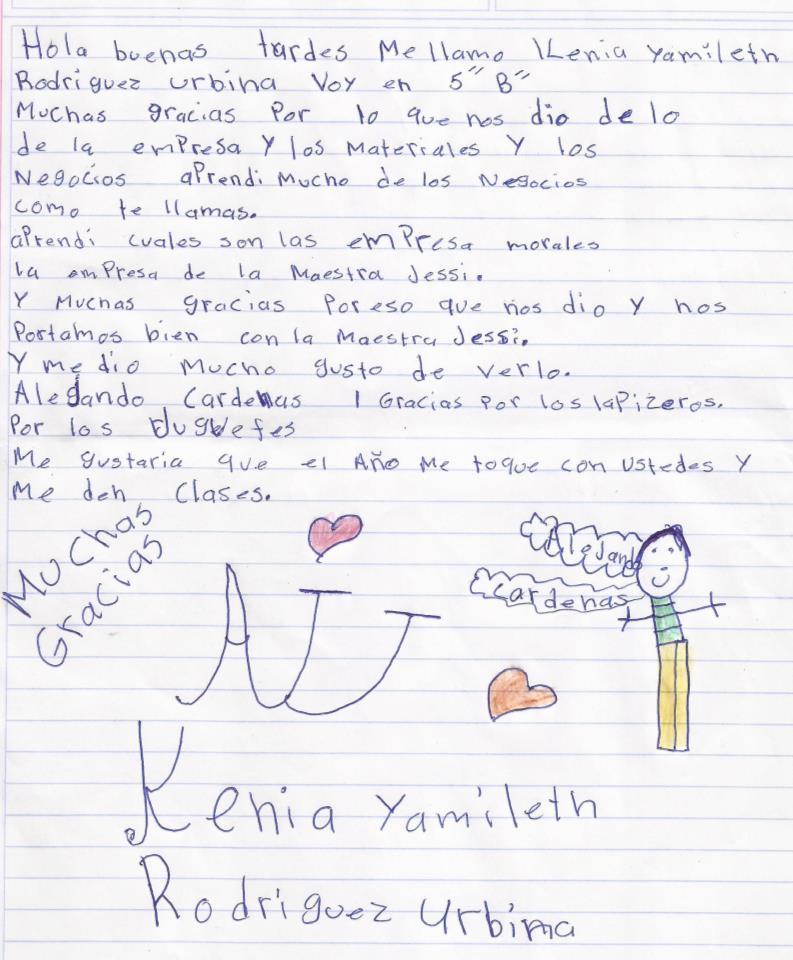 Hola buenas tardes Me llamo Kenia Yamileth
Rodriguez urbina Voy en 5" B"
Muchas gracias Por lo que nos dio de lo
de la emPresa Y los Materiales Y los
Negocios aPrendi Mucho de los Negocios
como te llamas.
aPrendi cuales son las emPresa morales
la emPresa de la Maestra Jessi.
Y Muchas gracias Por eso que nos dio Y nos
Portamos bien con la Maestra Jessi.
Y me dio Mucho gusto de verlo.
Alejando Cardenas | Gracias Por los laPizeros.
Por los Juguefes
Me gustaria que el Año Me toque con ustedes Y
Me den Clases.
Muchas
Gracias
Alejando
Cardenas
Kenia Yamileth
Rodriguez Urbina